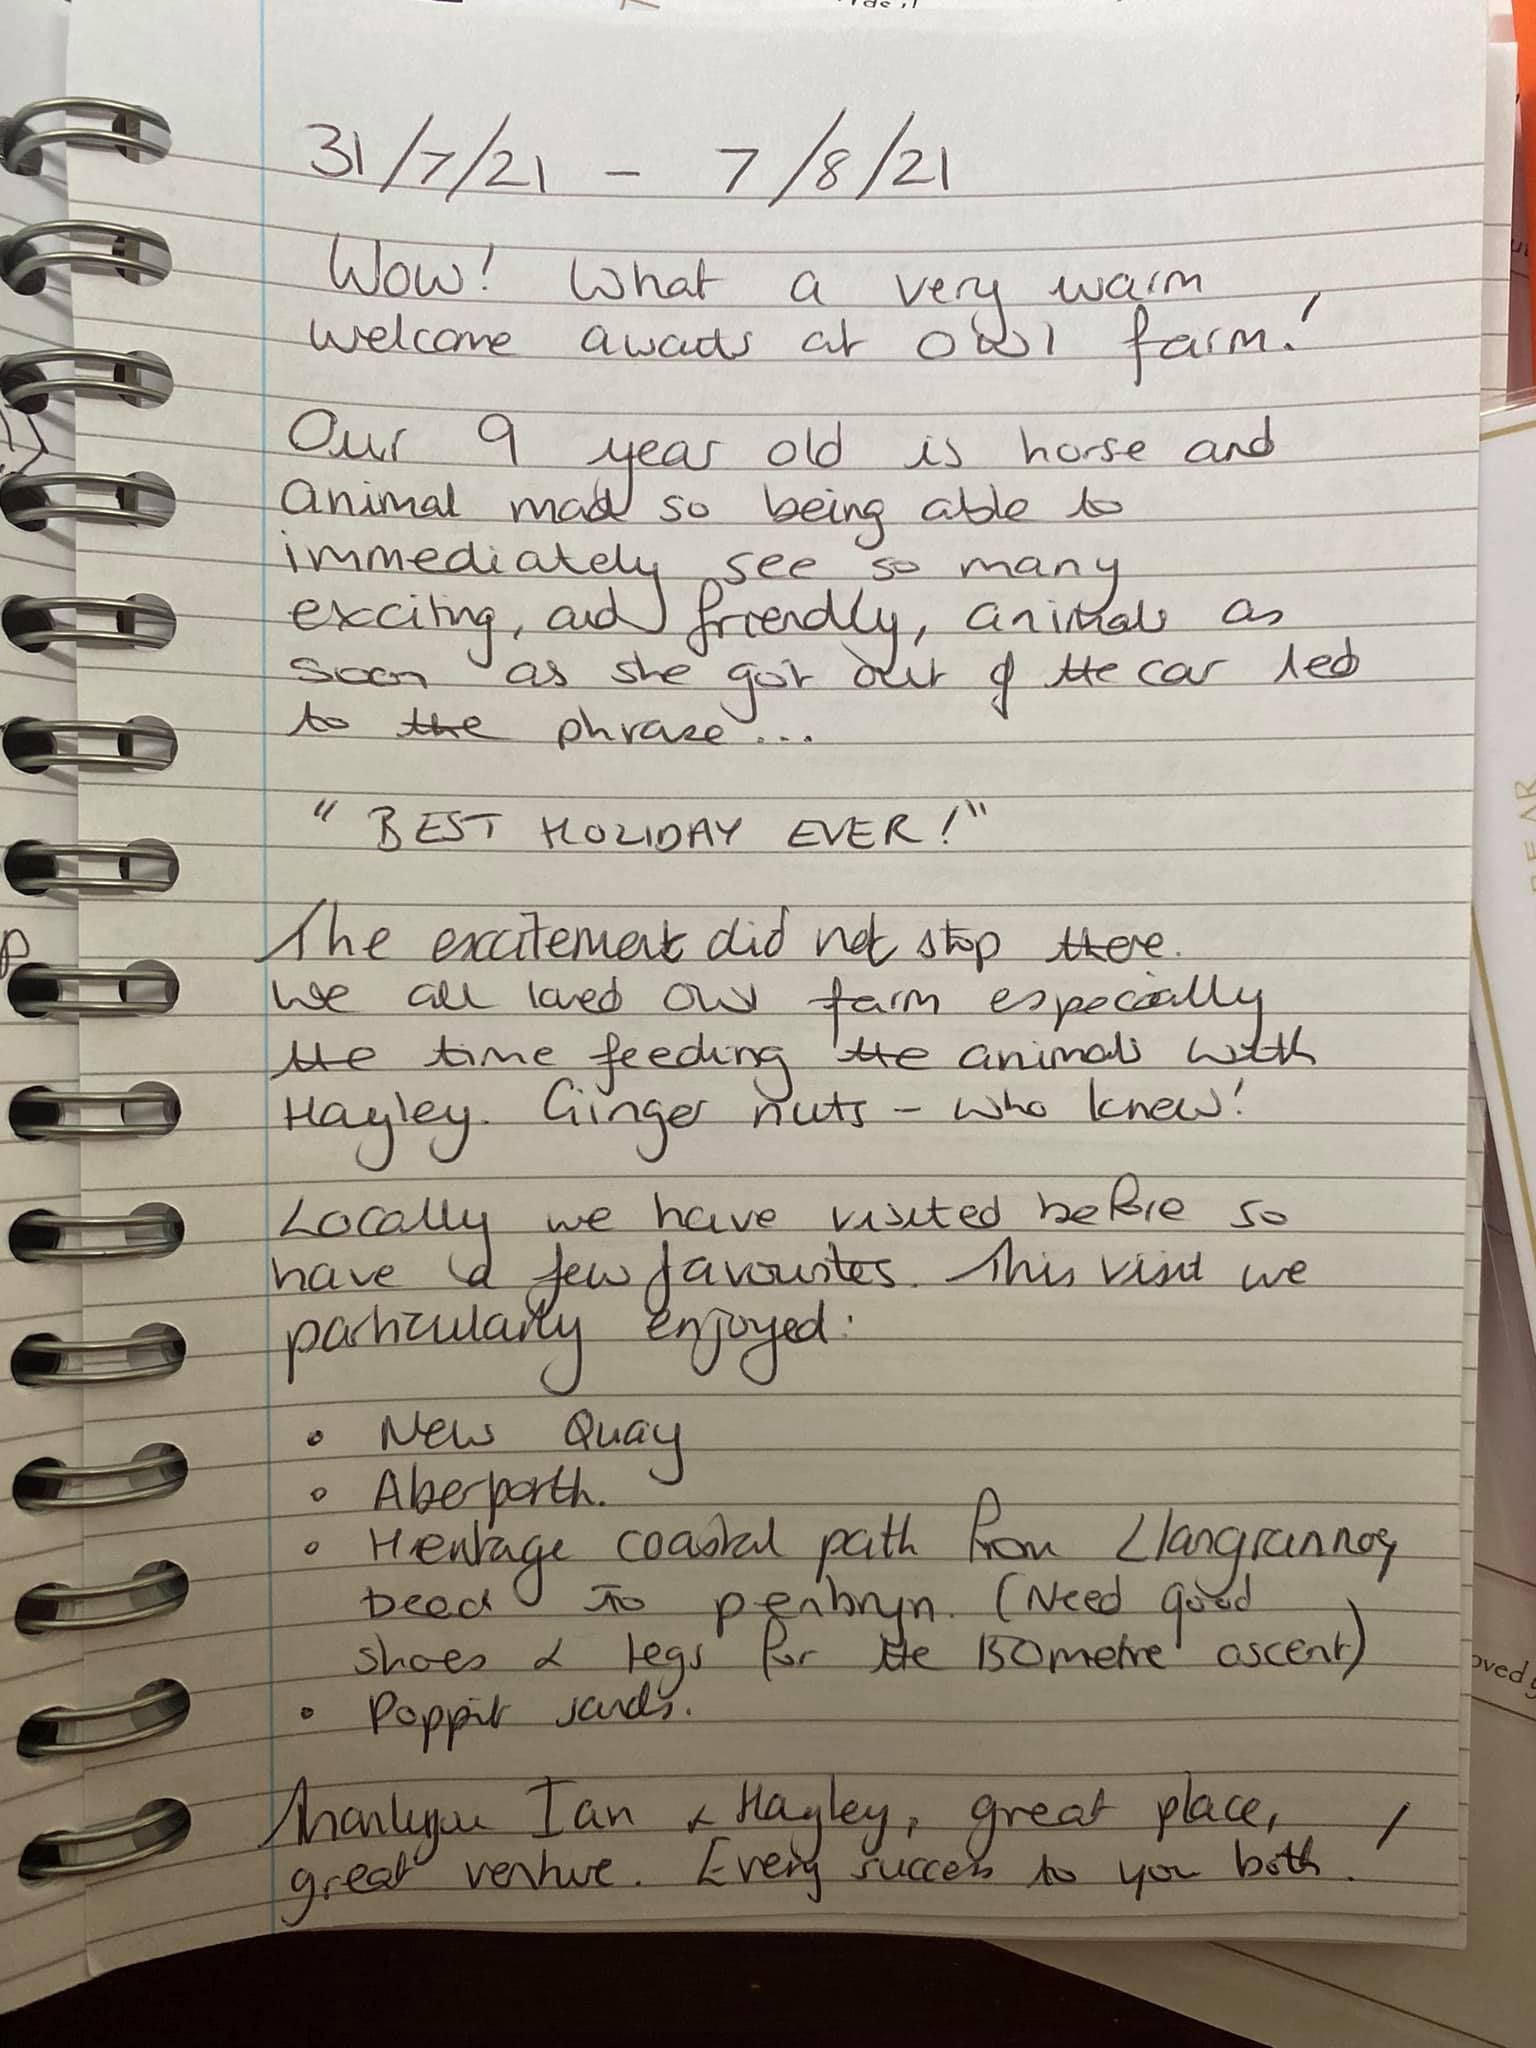 31/7/21 - 7/8/21
Wow! What a very warm
welcome awaits at Owl farm!
Our 9 year old is horse and
animal mad so being able to
immediately see so many
exciting, and friendly, animals as
soon as she got out of the car led
to the phrase...
"BEST HOLIDAY EVER!"
The excitement did not stop there.
We all loved Owl farm especially
the time feeding the animals with
Hayley. Ginger nuts - who knew!
Locally we have visited before so
have a few favourites. This visit we
particularly enjoyed:
• New Quay
• Aberporth.
• Heritage coastal path from Llangrannog
beach to penbryn. (Need good
shoes & legs for the 150metre ascent)
• Poppit sands.
Thankyou Ian & Hayley, great place,
great venture. Every success to you both!
oved y